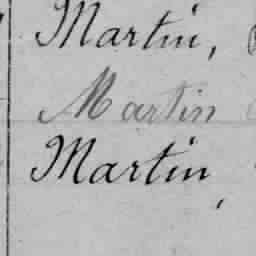 Martin,
Martin
Martin,